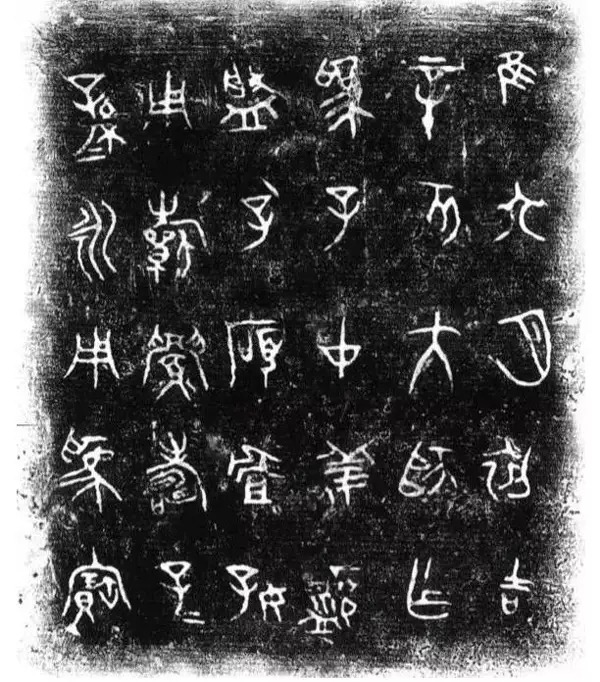 隹六月初吉
辛亥大師乍
為子中姜沬
盤孔碩且好
用祈眉壽子=
孫=永用為寶